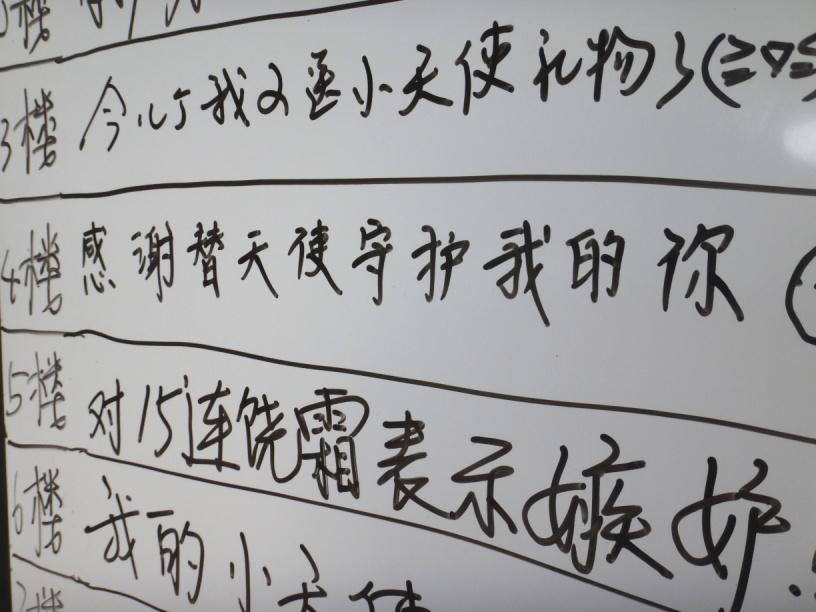 楼
3楼 今 我又送小天使礼物了(≧▽≦
4楼 感谢替天使守护我的你 (
5楼 对15连饶霜表示嫉妒!
6楼 我的小天使
楼